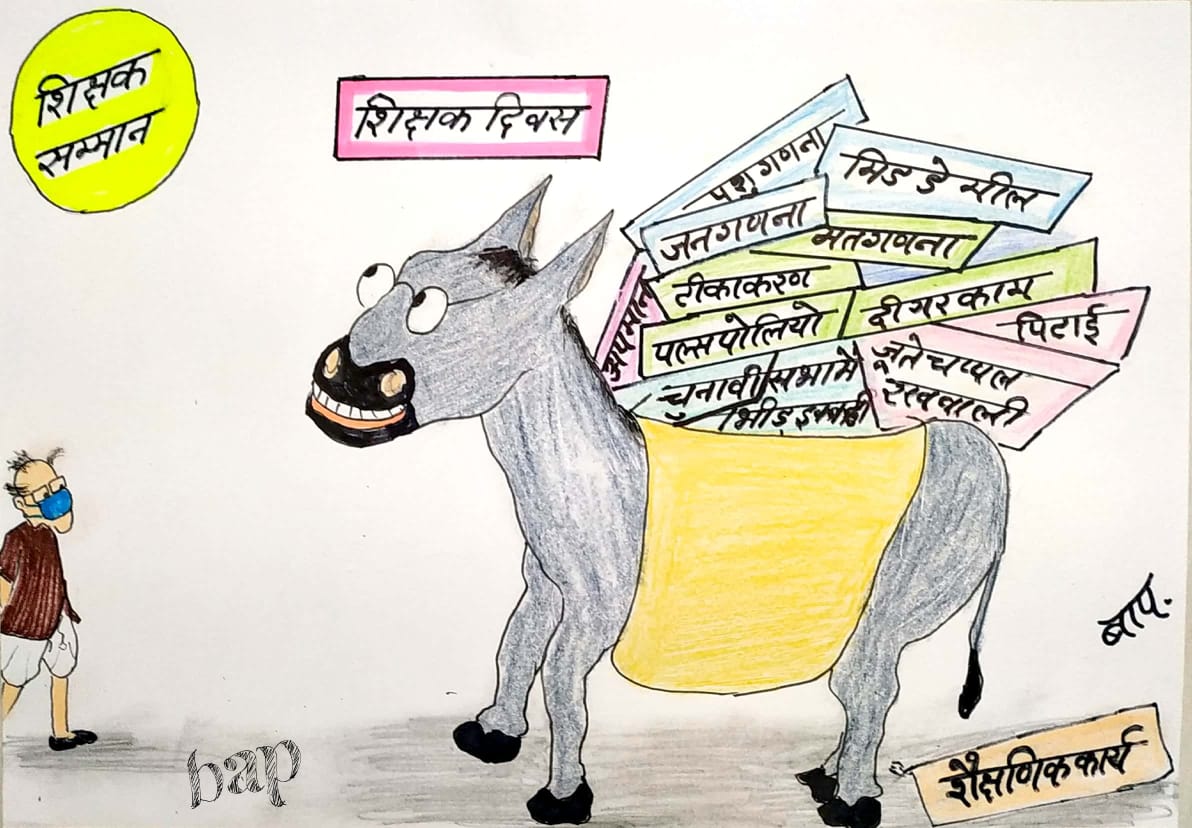 शिक्षक
सम्मान
शिक्षक दिवस
पशुगणना
मिड डे मील
जनगणना
मतगणना
टीकाकरण
दीगर काम
अपमान
पल्सपोलियो
पिटाई
चुनावी सभा में
भीड़ इकट्ठी
जूते चप्पल
रखवाली
बाप.
bap
शैक्षणिक कार्य